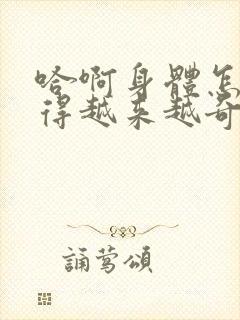 哈啊身體怎
得越来越奇
誦鶯頌